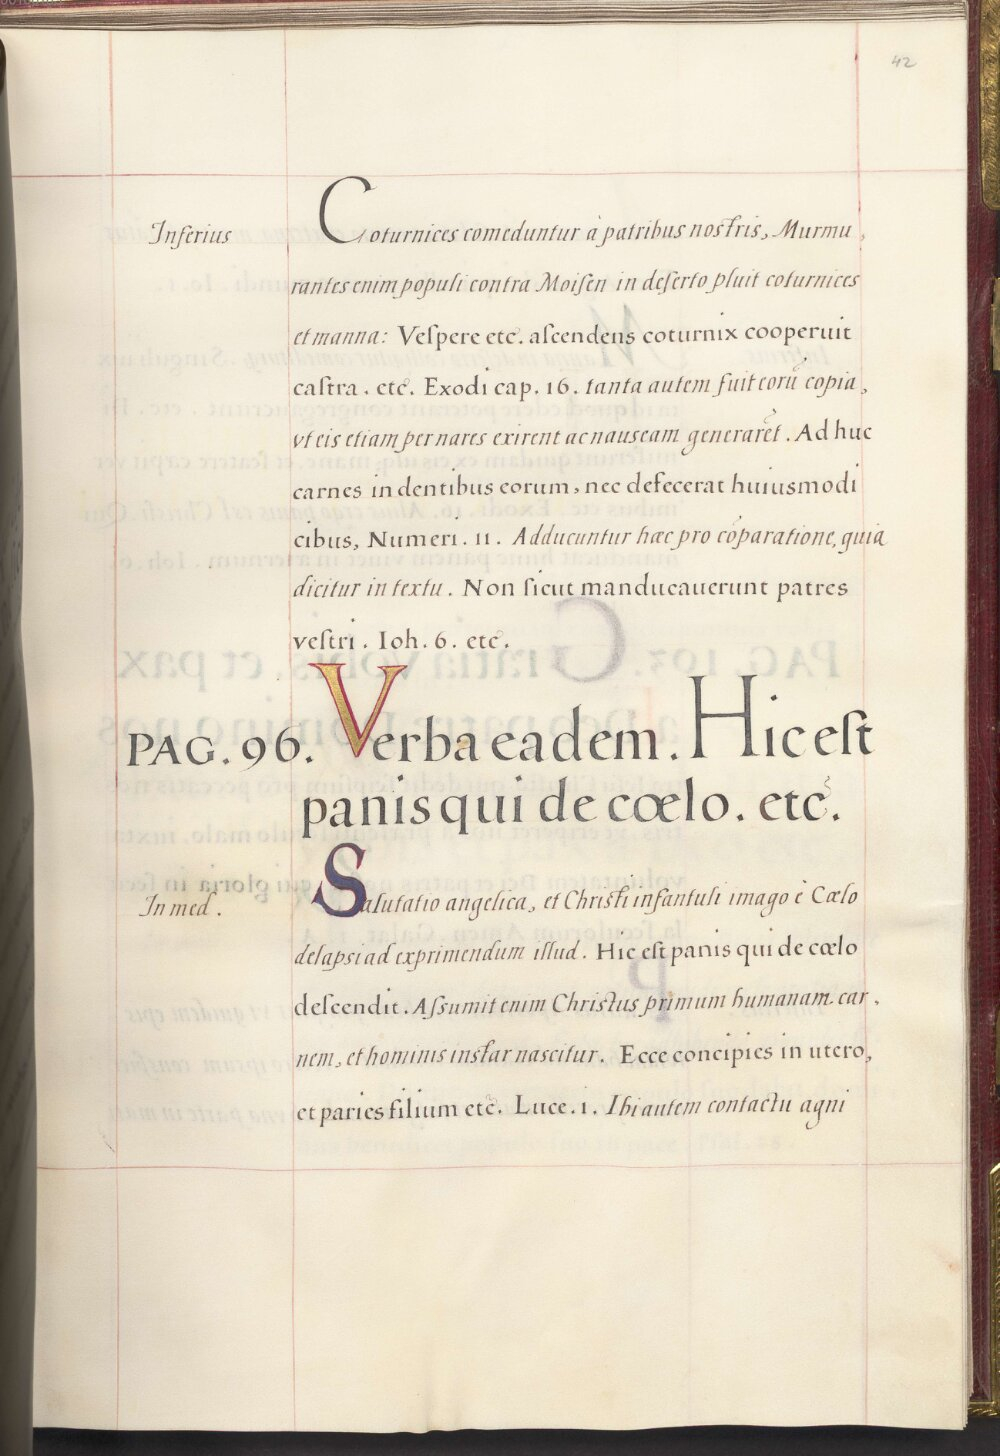 42
Inferius
Coturnices comeduntur à patribus nostris, Murmu,
rantes enim populi contra Moiſen in deſerto pluit coturnices
et manna: Veſpere etc. aſcendens coturnix cooperuit
caſtra. etc. Exodi cap. 16. tanta autem fuit eorū copia,
vt eis etiam per nares exirent ac nauseam generaret. Ad huc
carnes in dentibus eorum, nec defecerat huiusmodi
cibus, Numeri. 11. Adducuntur hæc pro cōparatione, quia
dicitur in textu. Non ſicut manducauerunt patres
veſtri. Ioh. 6. etc.
PAG. 96. Verba eadem. Hic eſt
panis qui de cœlo. etc.
In med.
Salutatio angelica, et Chriſti infantuli imago è Cœlo
delapsi ad exprimendum illud. Hic eſt panis qui de cœlo
deſcendit. Aſſumit enim Christus primum humanam car,
nem, et hominis instar nascitur. Ecce concipies in utero,
et paries filium etc. Luce. 1. Ibi autem contactu agni